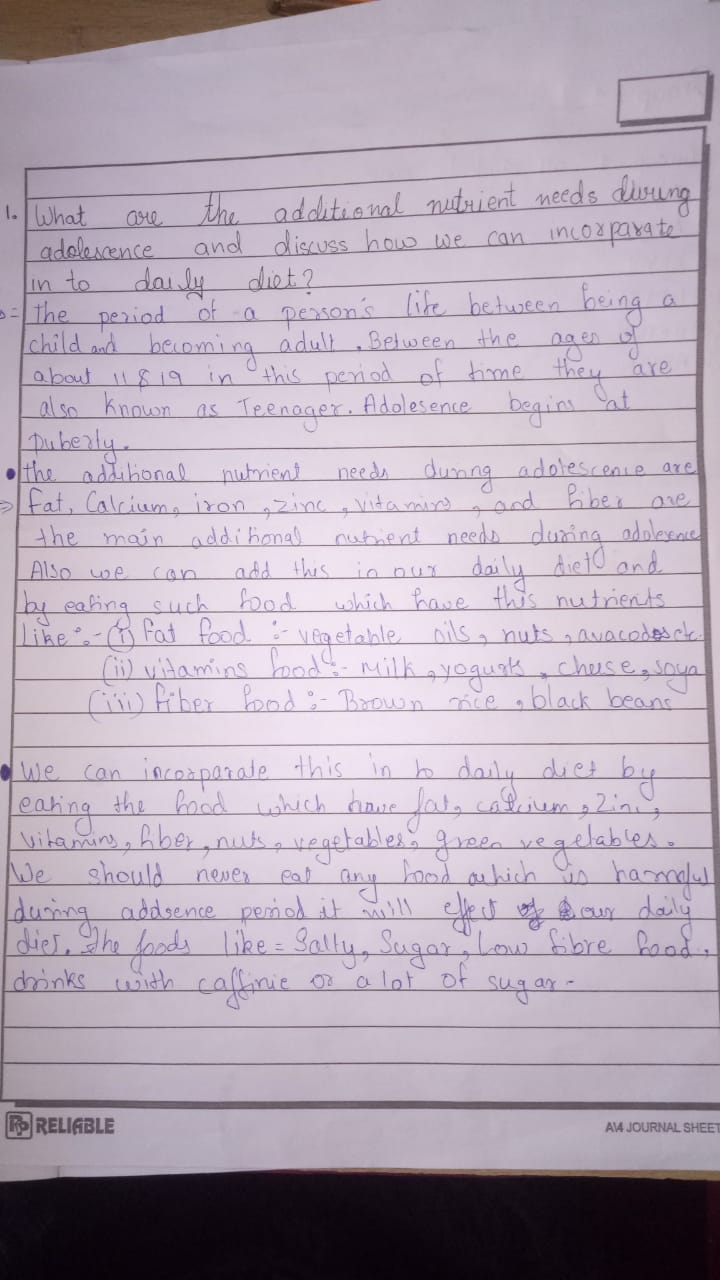 1. What are the additional nutrient needs during
adolescence and discuss how we can incorparate
in to daily diet?
the period of a person's life between being a
child and becoming adult. Between the ages of
about 11 & 19 in this period of time they are
also known as Teenager. Adolesence begins at
puberty.
• the additional nutrient needs during adolescence are
⇒ fat, Calcium, iron, zinc, vitamins, and fiber are
the main additional nutrient needs during adolesence
Also we can add this in our daily diet and
by eating such food which have this nutrients
like :- (i) fat food :- vegetable oils, nuts, avacados etc.
(ii) vitamins food :- Milk, yogurts, cheese, soya
(iii) fiber food :- Brown rice, black beans
• We can incorparate this in to daily diet by
eating the food which have fat, calcium, Zinc,
vitamins, fiber, nuts, vegetables, green vegetables.
We should never eat any food which is harmful
during addsence period it will effect our daily
diet. The foods like = Salty, Sugar, Low fibre food,
drinks with caffinie or a lot of sugar -
RELIABLE
A\4 JOURNAL SHEET